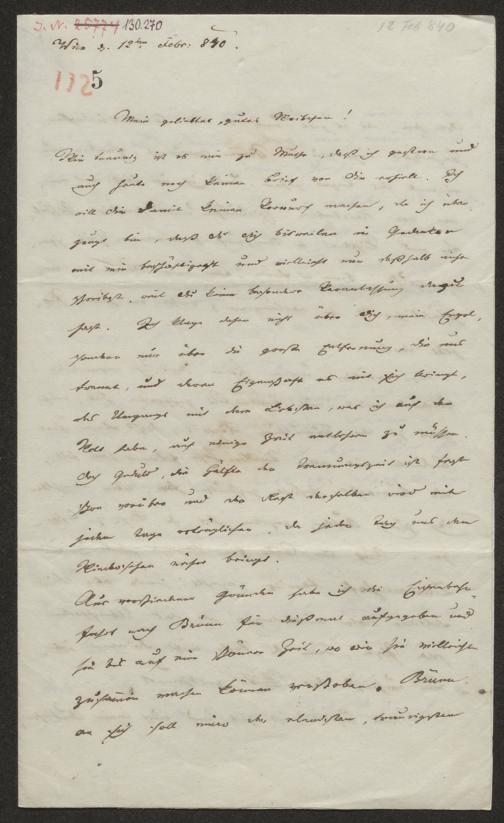 J. N. 25774 130.270
12 Feb 840
Wien d. 12ten Febr. 840.
135
Mein geliebtes, gutes Weibchen!
Wie traurig ist es mir zu Muthe, daß ich gestern und
auch heute noch keinen Brief von dir erhielt. Ich
will dir damit keinen Vorwurf machen, da ich über-
zeugt bin, daß du dich bisweilen in Gedanken
mit mir beschäftigest und vielleicht nur deßhalb nicht
schreibst, weil du keine besondere Veranlassung dazu
hast. Ich klage daher nicht über dich, mein Engel,
sondern nur über die große Entfernung, die uns
trennt, und deren Eigenschaft es mit sich bringt,
des Umgangs mit dem Liebsten, was ich auf der
Welt habe, auf einige Zeit entbehren zu müssen.
Doch Geduld, die Hälfte der Trennungszeit ist fast
schon vorüber und der Rest derselben wird mit
jedem Tage erträglicher, da jeder Tag uns dem
Wiedersehen näher bringt.
Aus verschiedenen Gründen habe ich die Eisenbahn-
fahrt nach Brünn für dießmal aufgegeben und
sie bis auf eine schönere Zeit, wo wir sie vielleicht
zusammen machen können verschoben. Brünn
an sich soll eine der elendsten, traurigsten